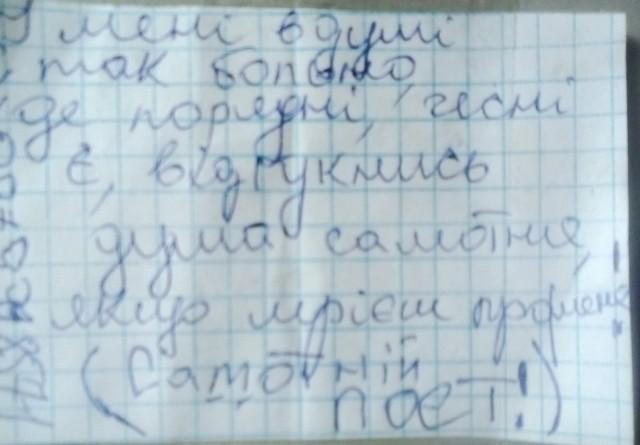 У мені в думі
так болемо,
де порядні, чесні
є, відгукнись
дума самотня,
якщо мрієш про мене!
(Самотній
поет!)